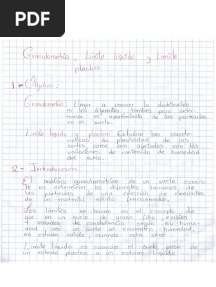 PDF
Granulometría, Límite líquido y límite
plástico
1- Objetivo:
Granulometría: Llegar a conocer la distribución
de los diferentes tamaños para deter-
minar el
en el suelo.
Límite líquido y plástico: Estudiar las caracte-
rísticas de plasticidad de los
suelos como son ajustados con las
variaciones de contenido de humedad
del suelo.
2- Introducción
El análisis granulométrico de un suelo consis-
te en determinar los diferentes tamaños de
las partículas de una cantidad de
de un material sólido fraccionado.
Los límites se basan en el concepto de
que en un suelo de grano fino existen
4 estados de consistencia según su hume-
dad, así un suelo se encuentra
en estado sólido, cuando está seco.
Límite líquido es cuando el suelo pasa de
un estado plástico a un estado líquido